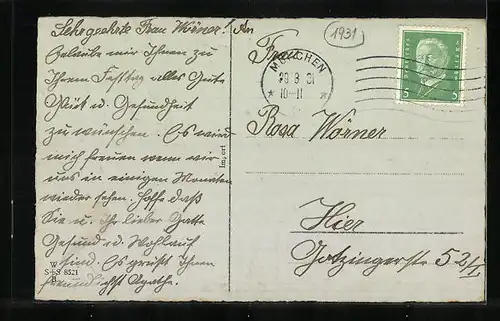 Sehrgeehrte Frau Wörner!
Erlaube mir Ihnen zu
Ihrem Festtag alles Gute
Glück u. Gesundheit
zu wünschen. Es wird
mich freuen wenn wir
uns in einigen Monaten
wieder sehen. Hoffe daß
Sie u. Ihr lieber Gatte
Gesund u. Wohlauf
sind. Es grüßt Ihnen
freundlichst Agathe.
W
S+S 8521
B
Import
An
1931
Frau
MÜNCHEN
29 8 31
10-11
5 5
Rosa Wörner
Hier
Gotzingerstr 52/I